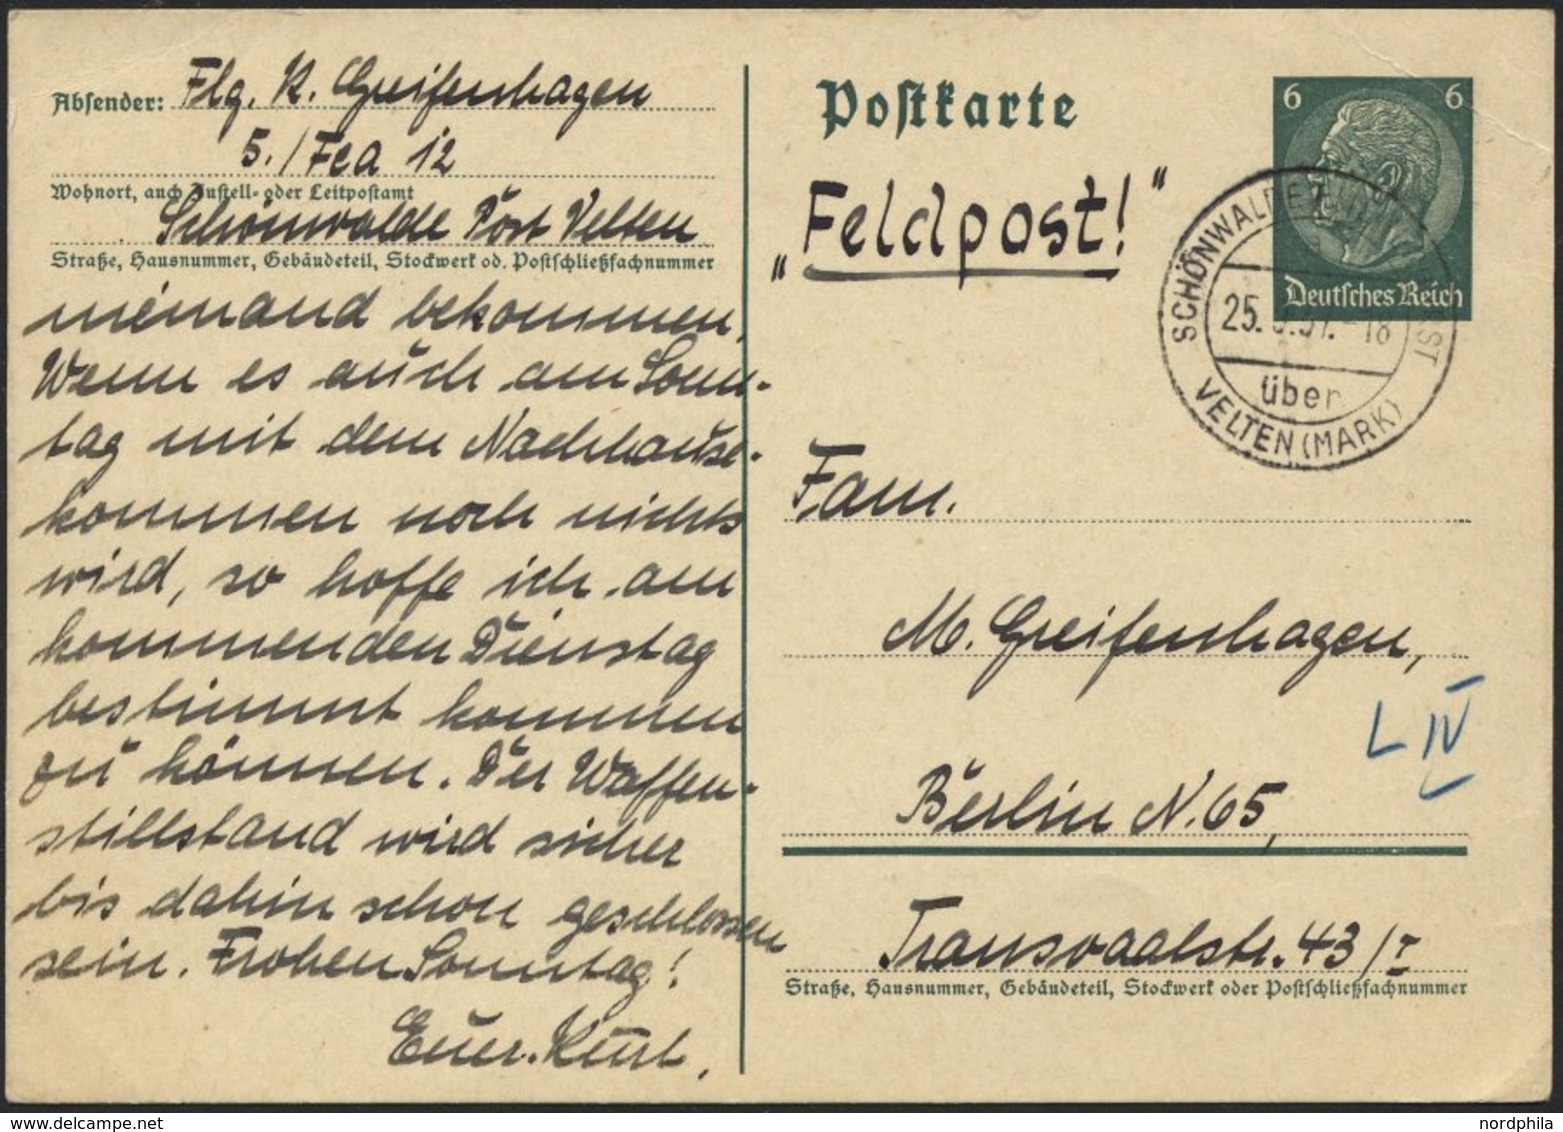 Absender: Flg. K. Greifenhagen
5./Fea 12
Wohnort, auch Zustell- oder Leitpostamt
Schönwalde Post Velten
Straße, Hausnummer, Gebäudeteil, Stockwerk od. Postschließfachnummer
niemand bekommen.
Wenn es auch am Sonn-
tag mit dem Nachhause-
kommen noch nichts
wird, so hoffe ich am
kommenden Dienstag
bestimmt kommen
zu können. Der Waffen-
stillstand wird sicher
bis dahin schon geschlossen
sein. Frohen Sonntag!
Euer Kurt.
Postkarte
„Feldpost!“
6 6
Deutsches Reich
SCHÖNWALDE
25. 
18
über
VELTEN (MARK)
Fam.
M. Greifenhagen,
L IV
Berlin N. 65,
Transvaalstr. 43/I
Straße, Hausnummer, Gebäudeteil, Stockwerk oder Postschließfachnummer
nordphila